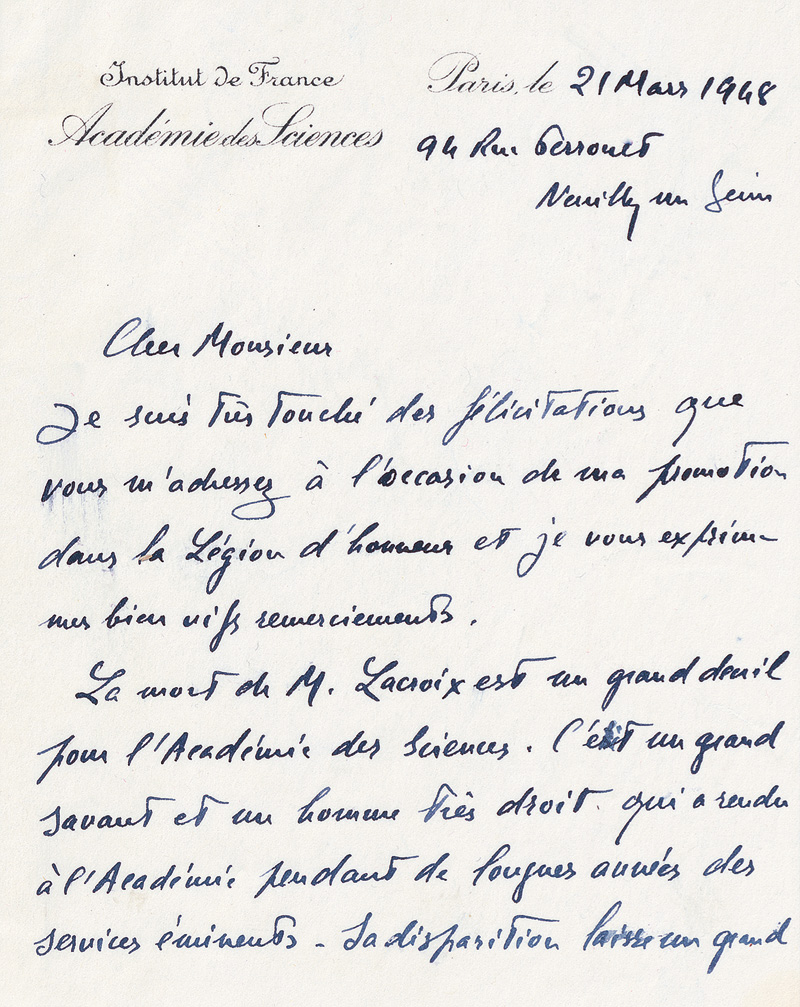 Institut de France
Académie des Sciences
Paris, le 21 Mars 1948
94 Rue Perronet
Neuilly sur Seine
Cher Monsieur
Je suis très touché des félicitations que
vous m'adressez à l'occasion de ma promotion
dans la Légion d'honneur et je vous exprime
mes bien vifs remerciements.
La mort de M. Lacroix est un grand deuil
pour l'Académie des Sciences. C'était un grand
savant et un homme très droit qui a rendu
à l'Académie pendant de longues années des
services éminents - Sa disparition laisse un grand